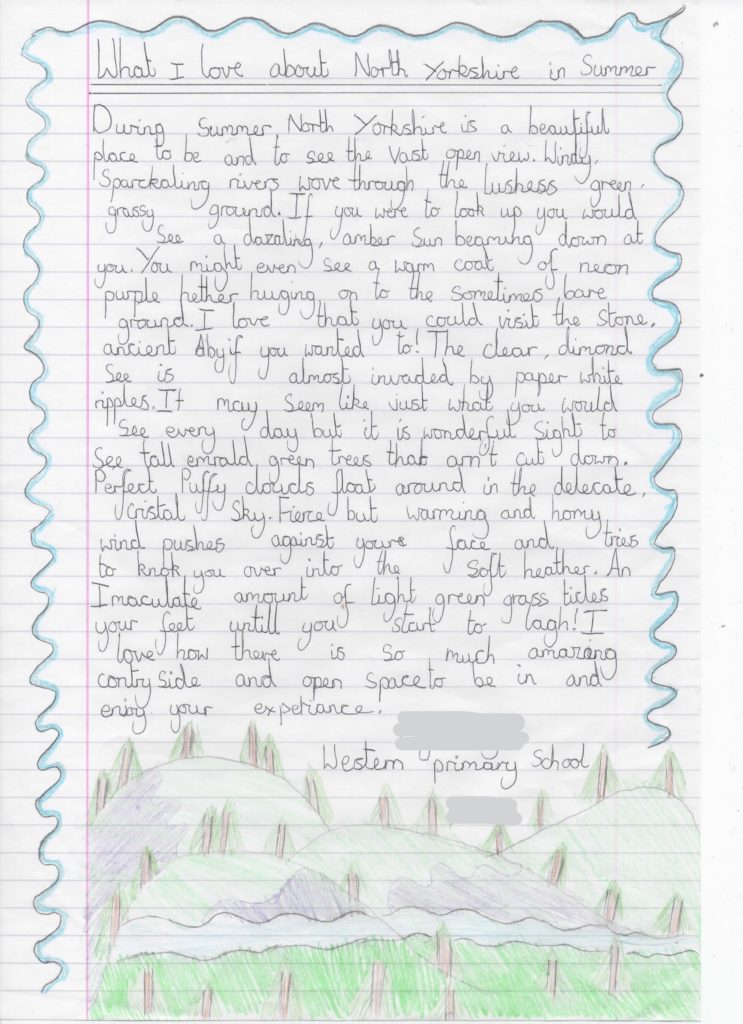 What I love about North Yorkshire in Summer
During Summer, North Yorkshire is a beautiful
place to be and to see the Vast open view. Windy,
Sparckaling rivers wove through the lushess green,
grassy ground. If you were to look up you would
See a dazaling, amber Sun beaming down at
you. You might even see a warm coat of neon
purple hether huging on to the sometimes bare
ground. I love that you could visit the Stone,
ancient Aby if you wanted to! The clear, dimond
See is almost invaded by paper white
ripples. It may Seem like just what you would
See every day but it is wonderful Sight to
See tall emrald green trees that arn't cut down.
Perfect Puffy clouds float around in the delecate,
cristal Sky. Fierce but warming and homy
wind pushes against youre face and tries
to knok you over into the Soft heather. An
Imaculate amount of light green grass ticles
your feet untill you start to lagh! I
love how there is so much amazing
contry Side and open Space to be in and
enjoy your experiance!
Western primary School